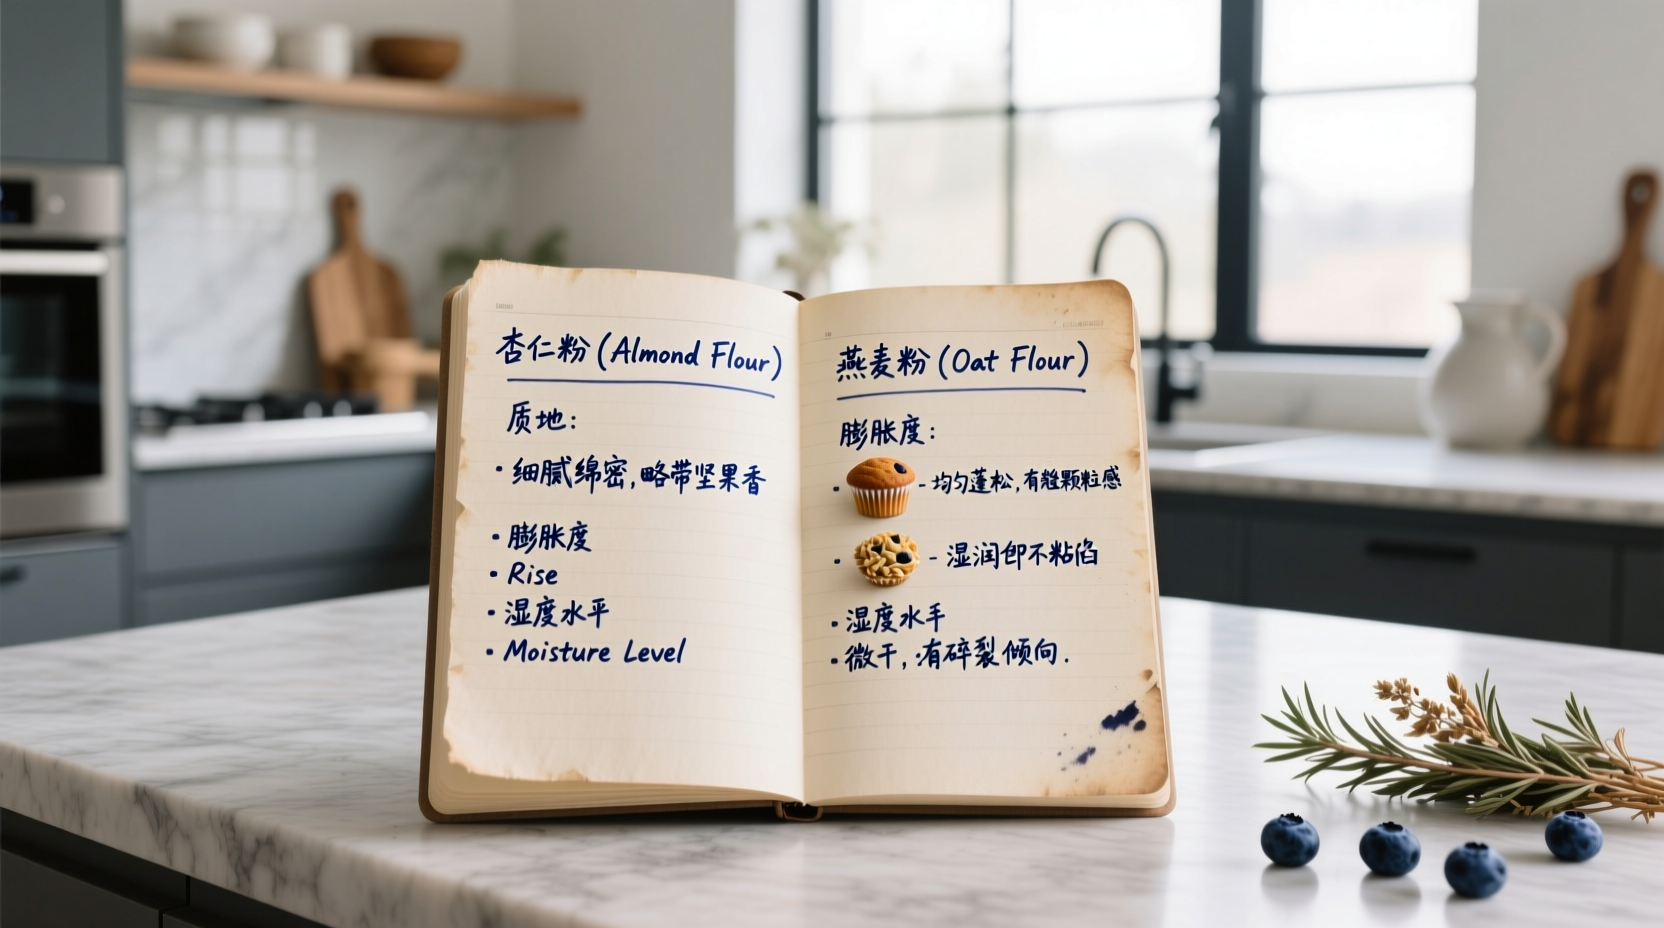 杏仁粉 (Almond Flour)
质地:
• 细腻绵密,略带坚果香
• 膨胀度
• Rise
• 湿度水平
• Moisture Level
燕麦粉 (Oat Flour)
膨胀度:
• - 均匀蓬松,有颗粒感
• - 湿润 不粘
• 湿度水手
• 微干, 有碎裂倾向.